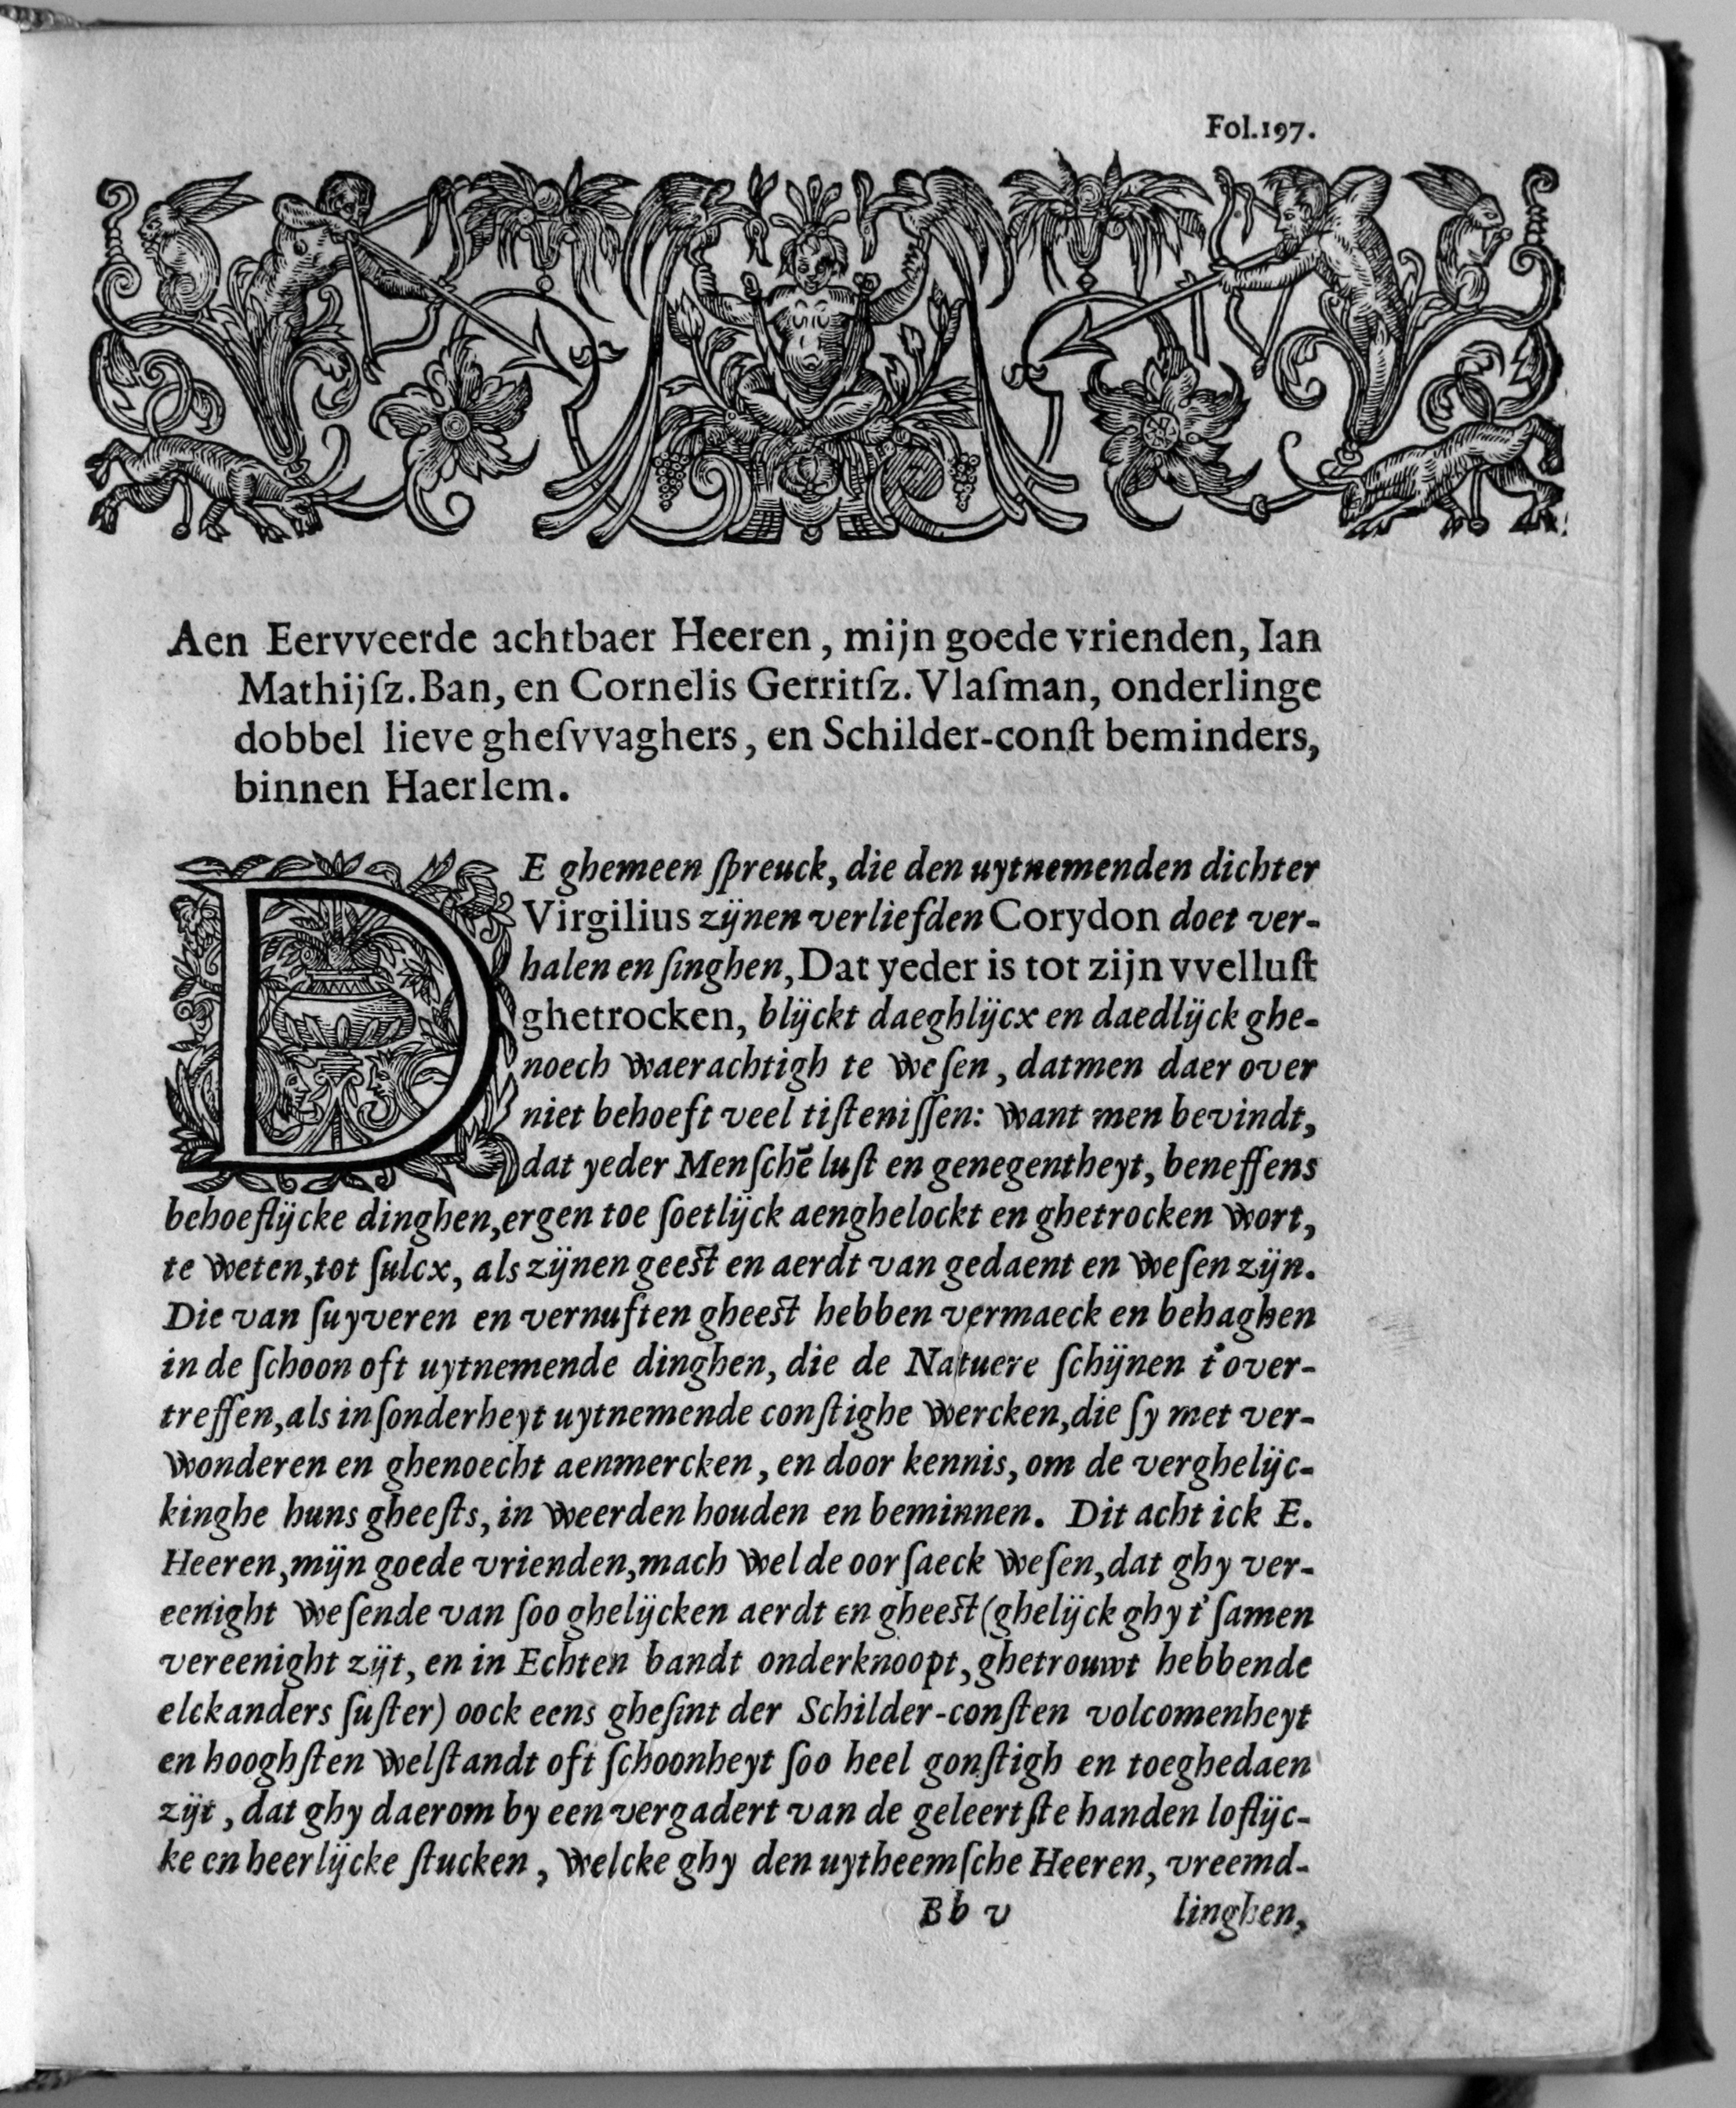 Fol.197.
Aen Eervveerde achtbaer Heeren, mijn goede vrienden, Ian
Mathijſz. Ban, en Cornelis Gerritſz. Vlaſman, onderlinge
dobbel lieve gheſvvaghers, en Schilder-conſt beminders,
binnen Haerlem.
DE ghemeen ſpreuck, die den uytnemenden dichter
Virgilius zijnen verliefden Corydon doet ver-
halen en ſinghen, Dat yeder is tot zijn vvelluſt
ghetrocken, blijckt daeghlijcx en daedlijck ghe-
noech waerachtigh te weſen, datmen daer over
niet behoeft veel tiſteniſſen: want men bevindt,
dat yeder Menſchē luſt en genegentheyt, beneffens
behoeflijcke dinghen, ergen toe ſoetlijck aenghelockt en ghetrocken wort,
te weten, tot ſulcx, als zijnen geeſt en aerdt van gedaent en weſen zijn.
Die van ſuyveren en vernuften gheeſt hebben vermaeck en behaghen
in de ſchoon oft uytnemende dinghen, die de Natuere ſchijnen t'over-
treffen, als inſonderheyt uytnemende conſtighe wercken, die ſy met ver-
wonderen en ghenoecht aenmercken, en door kennis, om de verghelijc-
kinghe huns gheeſts, in weerden houden en beminnen. Dit acht ick E.
Heeren, mijn goede vrienden, mach wel de oorſaeck weſen, dat ghy ver-
eenight weſende van ſoo ghelijcken aerdt en gheeſt (ghelijck ghy t'ſamen
vereenight zijt, en in Echten bandt onderknoopt, ghetrouwt hebbende
elckanders ſuſter) oock eens gheſint der Schilder-conſten volcomenheyt
en hooghſten welſtandt oft ſchoonheyt ſoo heel gonſtigh en toeghedaen
zijt, dat ghy daerom by een vergadert van de geleertſte handen loflijc-
ke en heerlijcke ſtucken, welcke ghy den uytheemſche Heeren, vreemd-
Bb v linghen,